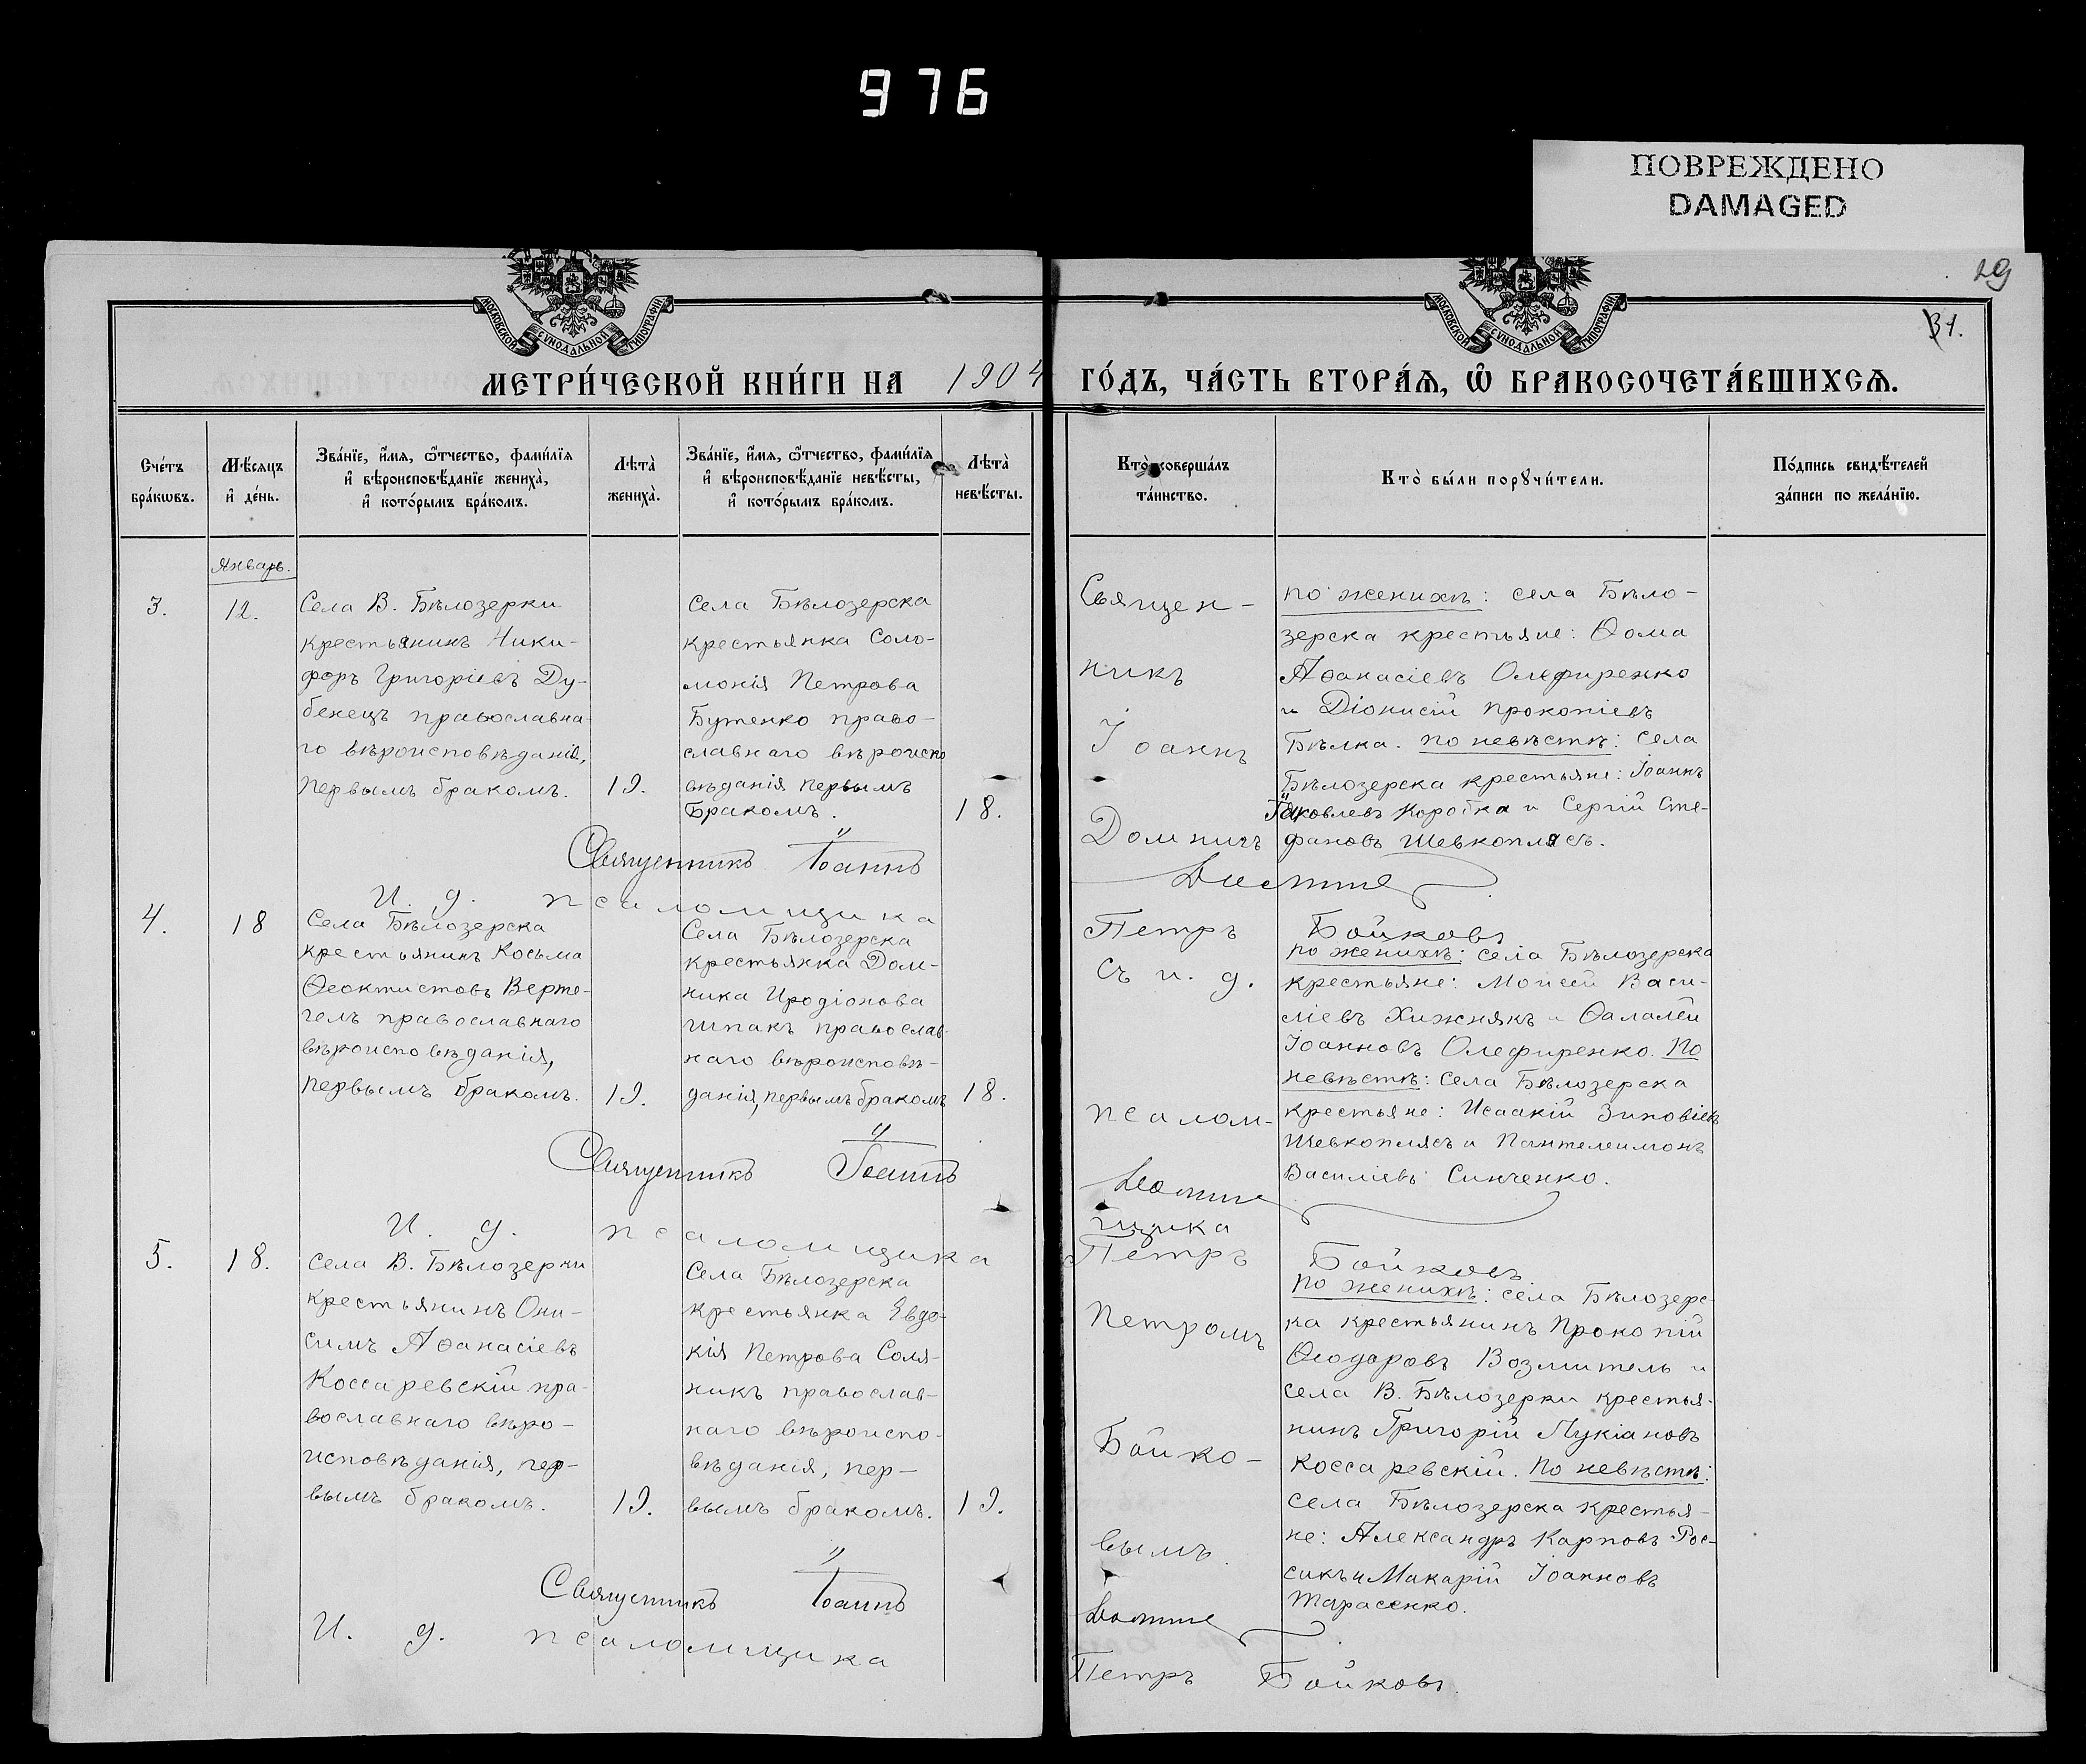 976
ПОВРЕЖДЕНО
DAMAGED
29
31.
МОСКОВСКОЙ СѴНОДАЛЬНОЙ ТИПОГРАФІИ
МОСКОВСКОЙ СѴНОДАЛЬНОЙ ТИПОГРАФІИ
МЕТРИ́ЧЕСКОЙ КНИ́ГИ НА 1904 ГО́ДЪ, ЧА́СТЬ ВТОРА́Я, Ѡ҆ БРАКОСОЧЕТА́ВШИХСЯ.
Сче́тъ
бра́кѡвъ.
Мѣ́сяцъ
и҆ де́нь.
Зва́нїе, и҆́мя, ѻ҆́тчество, фами́лїя
и҆ вѣроисповѣ́данїе жениха̀,
и҆ кото́рымъ бра́комъ.
Лѣта̀
жениха̀.
Зва́нїе, и҆́мя, ѻ҆́тчество, фами́лїя
и҆ вѣроисповѣ́данїе невѣ́сты,
и҆ кото́рымъ бра́комъ.
Лѣта̀
невѣ́сты.
Кто̀ соверша́лъ
та́инство.
Кто̀ бы́ли порꙋчи́тели.
По́дпись свидѣ́телей
за́писи по жела́нїю.
Январь.
3.
12.
Села В. Бѣлозерки
крестьянинъ Ники-
форъ Григоріевъ Ду-
бенецъ православна-
го вѣроисповѣданія,
первымъ бракомъ.
19.
Села Бѣлозерска
крестьянка Соло-
монія Петрова
Бутенко право-
славнаго вѣроиспо
вѣданія первымъ
бракомъ.
18.
Священ-
никъ
Іоаннъ
Домничъ
по женихѣ: села Бѣло-
зерска крестьяне: Ѳома
Аѳанасіевъ Олефиренко
и Діонисій Прокопіевъ
Бѣлка. по невѣстѣ: села
Бѣлозерска крестьяне: Іоаннъ
Яковлевъ Коротка и Сергій Сте-
фановъ Шевкоплясъ.
Священникъ Іоаннъ
И. д. псаломщика
Петръ Бойковъ
4.
18
Села Бѣлозерска
крестьянинъ Косьма
Ѳеоктистовъ Верте-
гелъ православнаго
вѣроисповѣданія,
первымъ бракомъ.
19.
Села Бѣлозерска
крестьянка Дом-
ника Иродіонова
Шпакъ православ-
наго вѣроисповѣ-
данія, первымъ бракомъ
18.
съ и. д.
псалом-
щика
по женихѣ: села Бѣлозерска
крестьяне: Моисей Васи-
ліевъ Хижнякъ и Ѳалалей
Іоанновъ Олефиренко. По
невѣстѣ: села Бѣлозерска
крестьяне: Исаакій Зиновіевъ
Шевкоплясъ и Пантелеимонъ
Василіевъ Синченко.
Священникъ Іоаннъ
И. д. псаломщика
Петръ Бойковъ
5.
18.
Села В. Бѣлозерки
крестьянинъ Они-
симъ Аѳанасіевъ
Коссаревскій пра-
вославнаго вѣро-
исповѣданія, пер-
вымъ бракомъ.
19.
Села Бѣлозерска
крестьянка Евдо-
кія Петрова Соля-
никъ православ-
наго вѣроиспо-
вѣданія, пер-
вымъ бракомъ.
19.
Петромъ
Бойко-
вымъ.
по женихѣ: села Бѣлозерс-
ка крестьянинъ Прокопій
Ѳеодоровъ Возмитель и
села В. Бѣлозерки крестья-
нинъ Григорій Лукіановъ
Коссаревскій. По невѣстѣ:
села Бѣлозерска крестья-
не: Александръ Карповъ Рос-
сикъ и Макарій Іоанновъ
Тарасенко.
Священникъ Іоаннъ
И. д. псаломщика
Петръ Бойковъ.